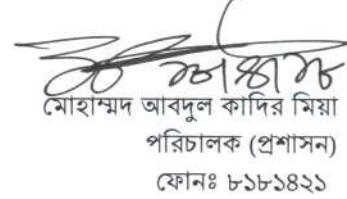 মোহাম্মদ আবদুল কাদির মিয়া
পরিচালক (প্রশাসন)
ফোনঃ ৮১৮১৪২১